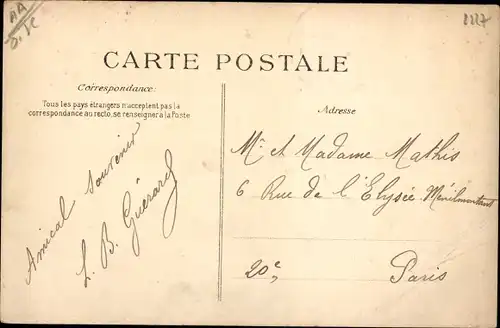 AA
2227
CARTE POSTALE
Correspondance:
Tous les pays étrangers n'acceptent pas la
correspondance au recto, se renseigner à la Poste
Amical souvenir
L. B. Guérard
Adresse
Mr et Madame Mathis
6 Rue de l'Elysée Ménilmontant
20e, Paris